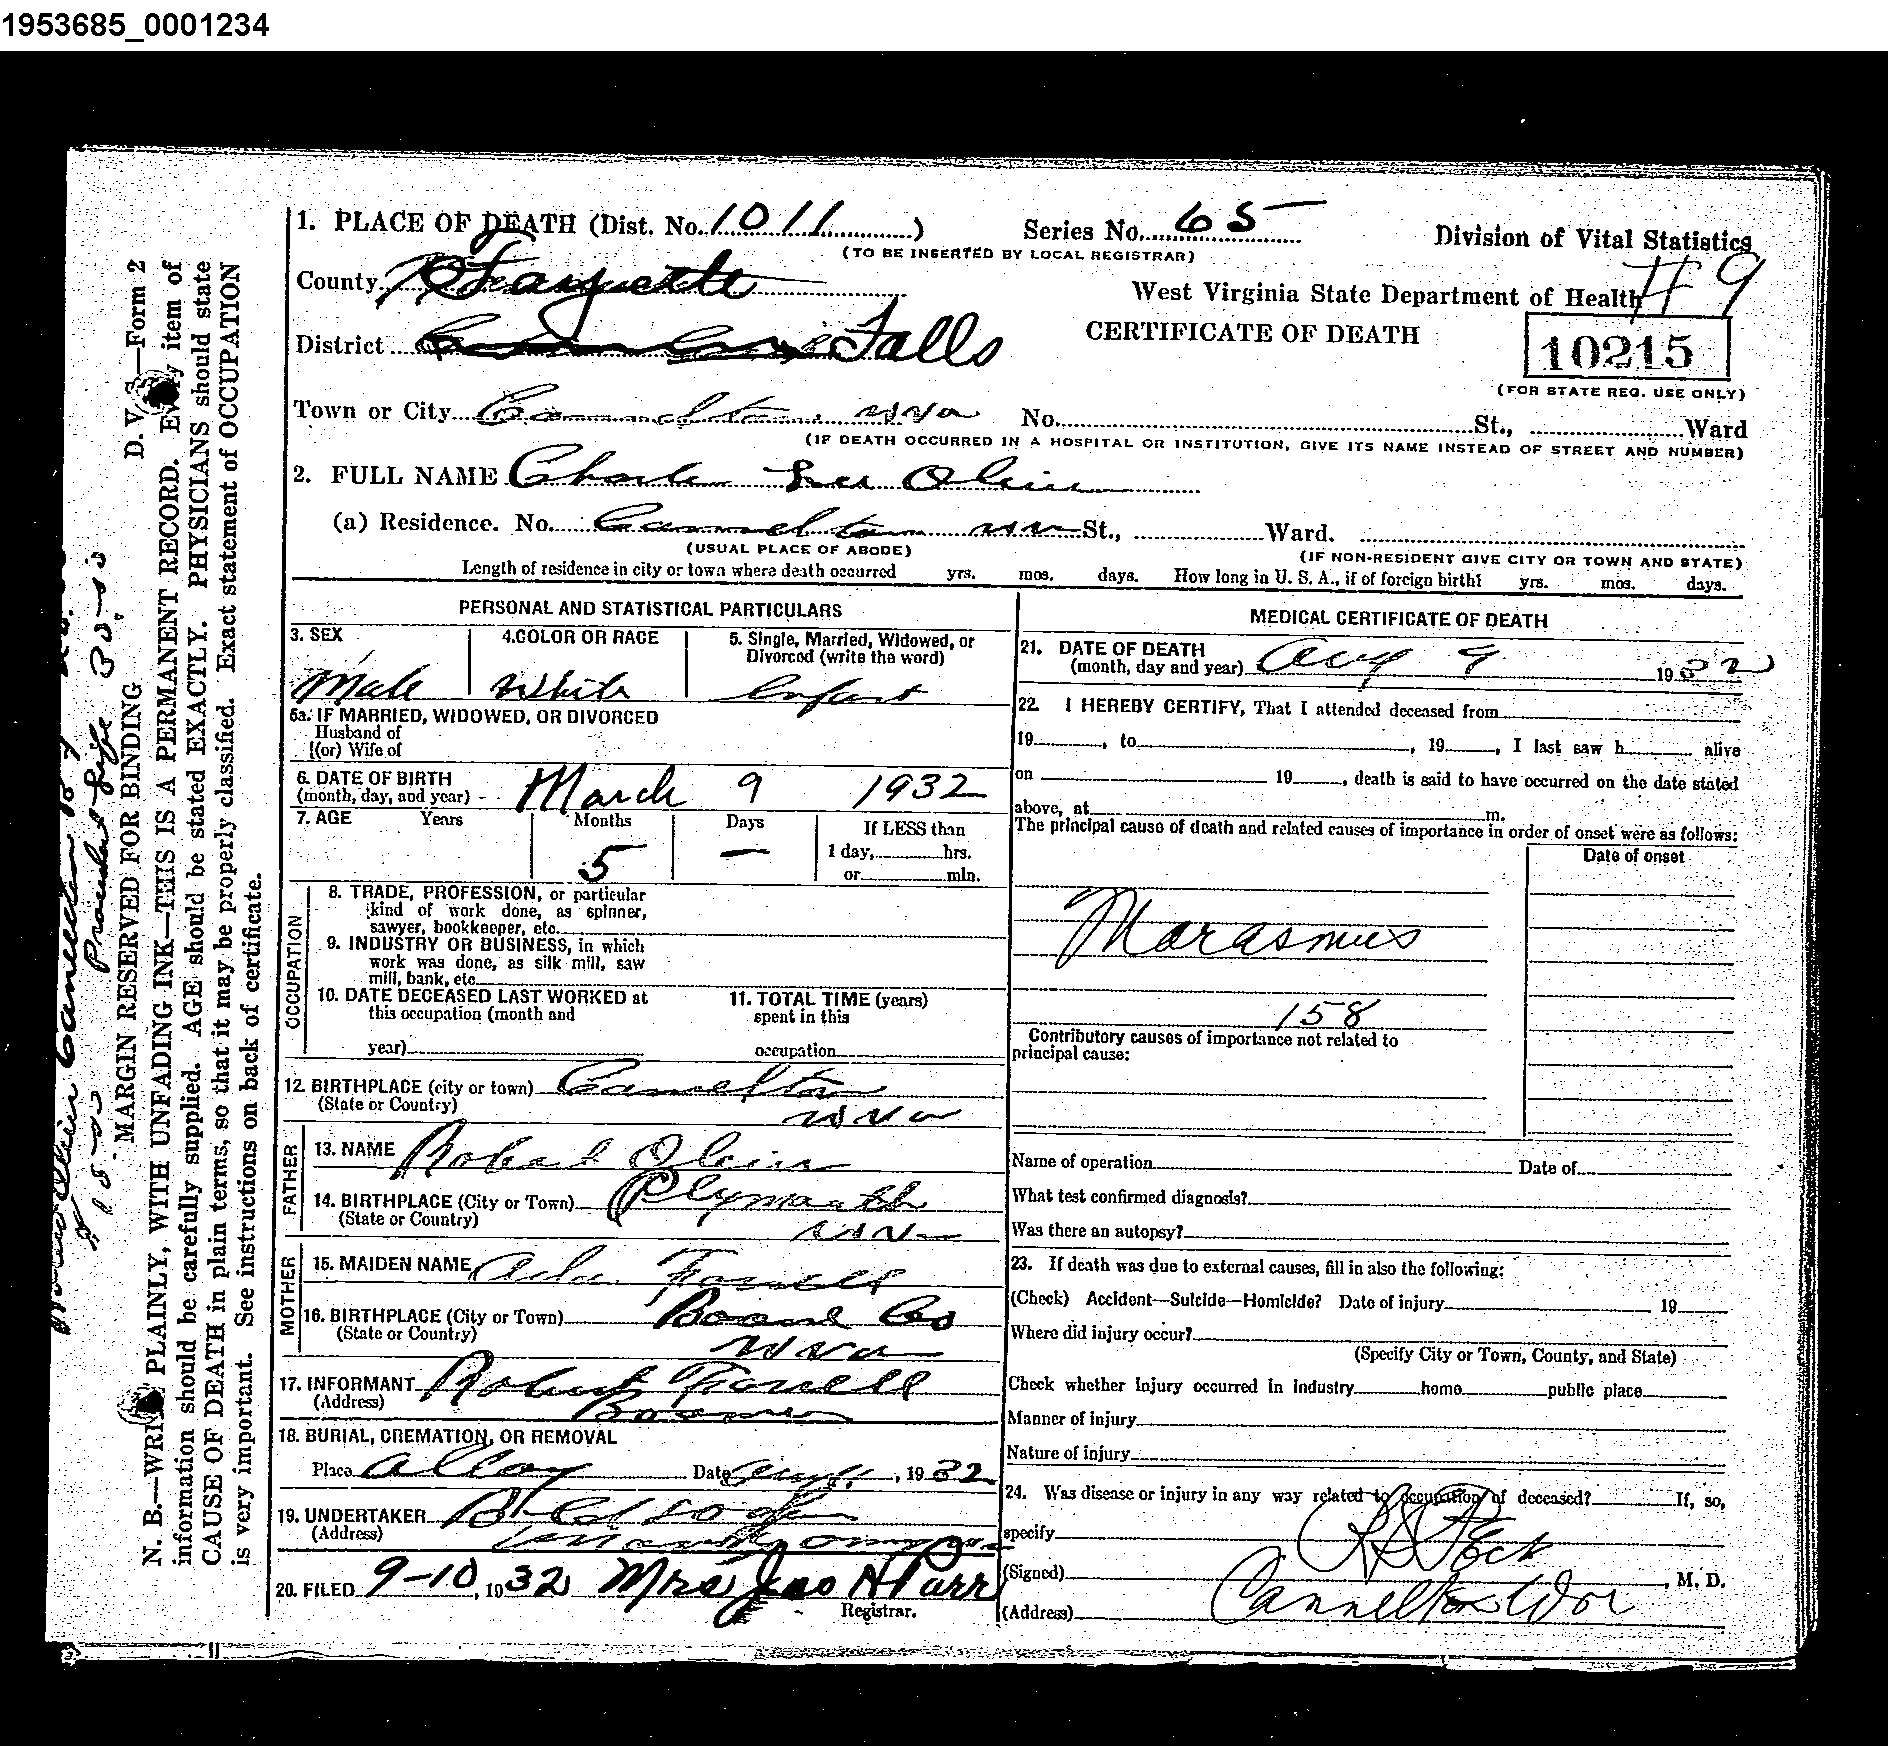 1953685_0001234
1. PLACE OF DEATH (Dist. No. 1011)
Series No. 65
Division of Vital Statistics
(TO BE INSERTED BY LOCAL REGISTRAR)
County Fayette
West Virginia State Department of Health # 9
District Falls
CERTIFICATE OF DEATH
10215
(FOR STATE REG. USE ONLY)
Town or City Cannelton, WVa No. St., Ward
(IF DEATH OCCURRED IN A HOSPITAL OR INSTITUTION, GIVE ITS NAME INSTEAD OF STREET AND NUMBER)
2. FULL NAME Charles Lee
(a) Residence. No. Cannelton St., Ward.
(USUAL PLACE OF ABODE)
(IF NON-RESIDENT GIVE CITY OR TOWN AND STATE)
Length of residence in city or town where death occurred yrs. mos. days. How long in U. S. A., if of foreign birth? yrs. mos. days.
PERSONAL AND STATISTICAL PARTICULARS
3. SEX
Male
4. COLOR OR RACE
White
5. Single, Married, Widowed, or
Divorced (write the word)
Infant
5a. IF MARRIED, WIDOWED, OR DIVORCED
Husband of
(or) Wife of
6. DATE OF BIRTH
(month, day, and year) - March 9 1932
7. AGE Years Months Days If LESS than
5 — 1 day, hrs.
or min.
OCCUPATION
8. TRADE, PROFESSION, or particular
kind of work done, as spinner,
sawyer, bookkeeper, etc.
9. INDUSTRY OR BUSINESS, in which
work was done, as silk mill, saw
mill, bank, etc.
10. DATE DECEASED LAST WORKED at
this occupation (month and
year)
11. TOTAL TIME (years)
spent in this
occupation
12. BIRTHPLACE (city or town) Cannelton
(State or Country) WVa
FATHER
13. NAME Robert
14. BIRTHPLACE (City or Town) Plymouth
(State or Country)
MOTHER
15. MAIDEN NAME Ada Farrell
16. BIRTHPLACE (City or Town) Boone Co
(State or Country) WVa
17. INFORMANT Robert Farrell
(Address) Boomer
18. BURIAL, CREMATION, OR REMOVAL
Place Alloy Date Aug , 1932
19. UNDERTAKER
(Address) Montgomery
20. FILED 9-10, 1932 Mrs Jno H Parr
Registrar.
MEDICAL CERTIFICATE OF DEATH
21. DATE OF DEATH
(month, day and year) Aug 9 1932
22. I HEREBY CERTIFY, That I attended deceased from
19 , to , 19 , I last saw h alive
on 19 , death is said to have occurred on the date stated
above, at m.
The principal cause of death and related causes of importance in order of onset were as follows:
Date of onset
Marasmus
158
Contributory causes of importance not related to
principal cause:
Name of operation Date of
What test confirmed diagnosis?
Was there an autopsy?
23. If death was due to external causes, fill in also the following:
(Check) Accident—Suicide—Homicide? Date of injury 19
Where did injury occur?
(Specify City or Town, County, and State)
Check whether injury occurred in industry home public place
Manner of injury
Nature of injury
24. Was disease or injury in any way related to occupation of deceased? If, so,
specify
(Signed) Peck, M. D.
(Address) Cannelton WVa
D. V. S.—Form 2
MARGIN RESERVED FOR BINDING
N. B.—WRITE PLAINLY, WITH UNFADING INK—THIS IS A PERMANENT RECORD. Every item of
information should be carefully supplied. AGE should be stated EXACTLY. PHYSICIANS should state
CAUSE OF DEATH in plain terms, so that it may be properly classified. Exact statement of OCCUPATION
is very important. See instructions on back of certificate.